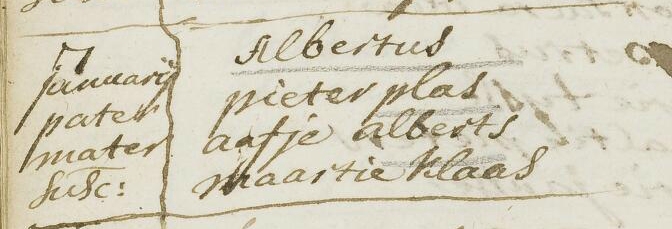 7 Albertus
januarij
pater pieter plas
mater aafje alberts
susc: maartie klaas